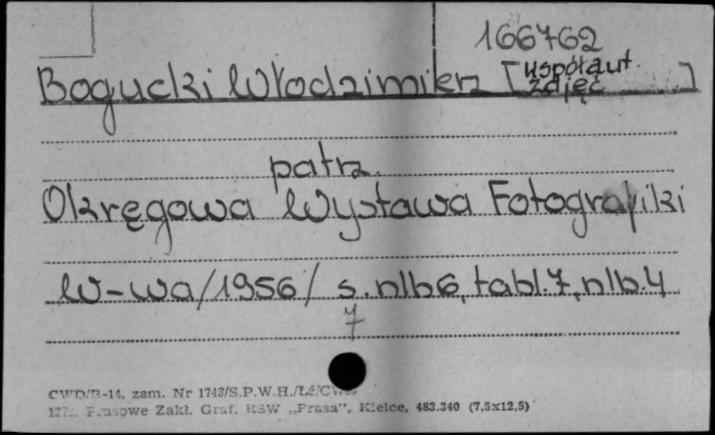 166762
Bogucki Włodzimierz [współaut. zdjęć]
patrz
Okręgowa Wystawa Fotografiki
W-wa/1956/ s.nlb6, tabl.7, nlb.4
7
CWD/B-14, zam. Nr 1743/S.P.W.H./Lż/
Prasowe Zakł. Graf. RSW „Prasa", Kielce, 483.340 (7,5x12,5)